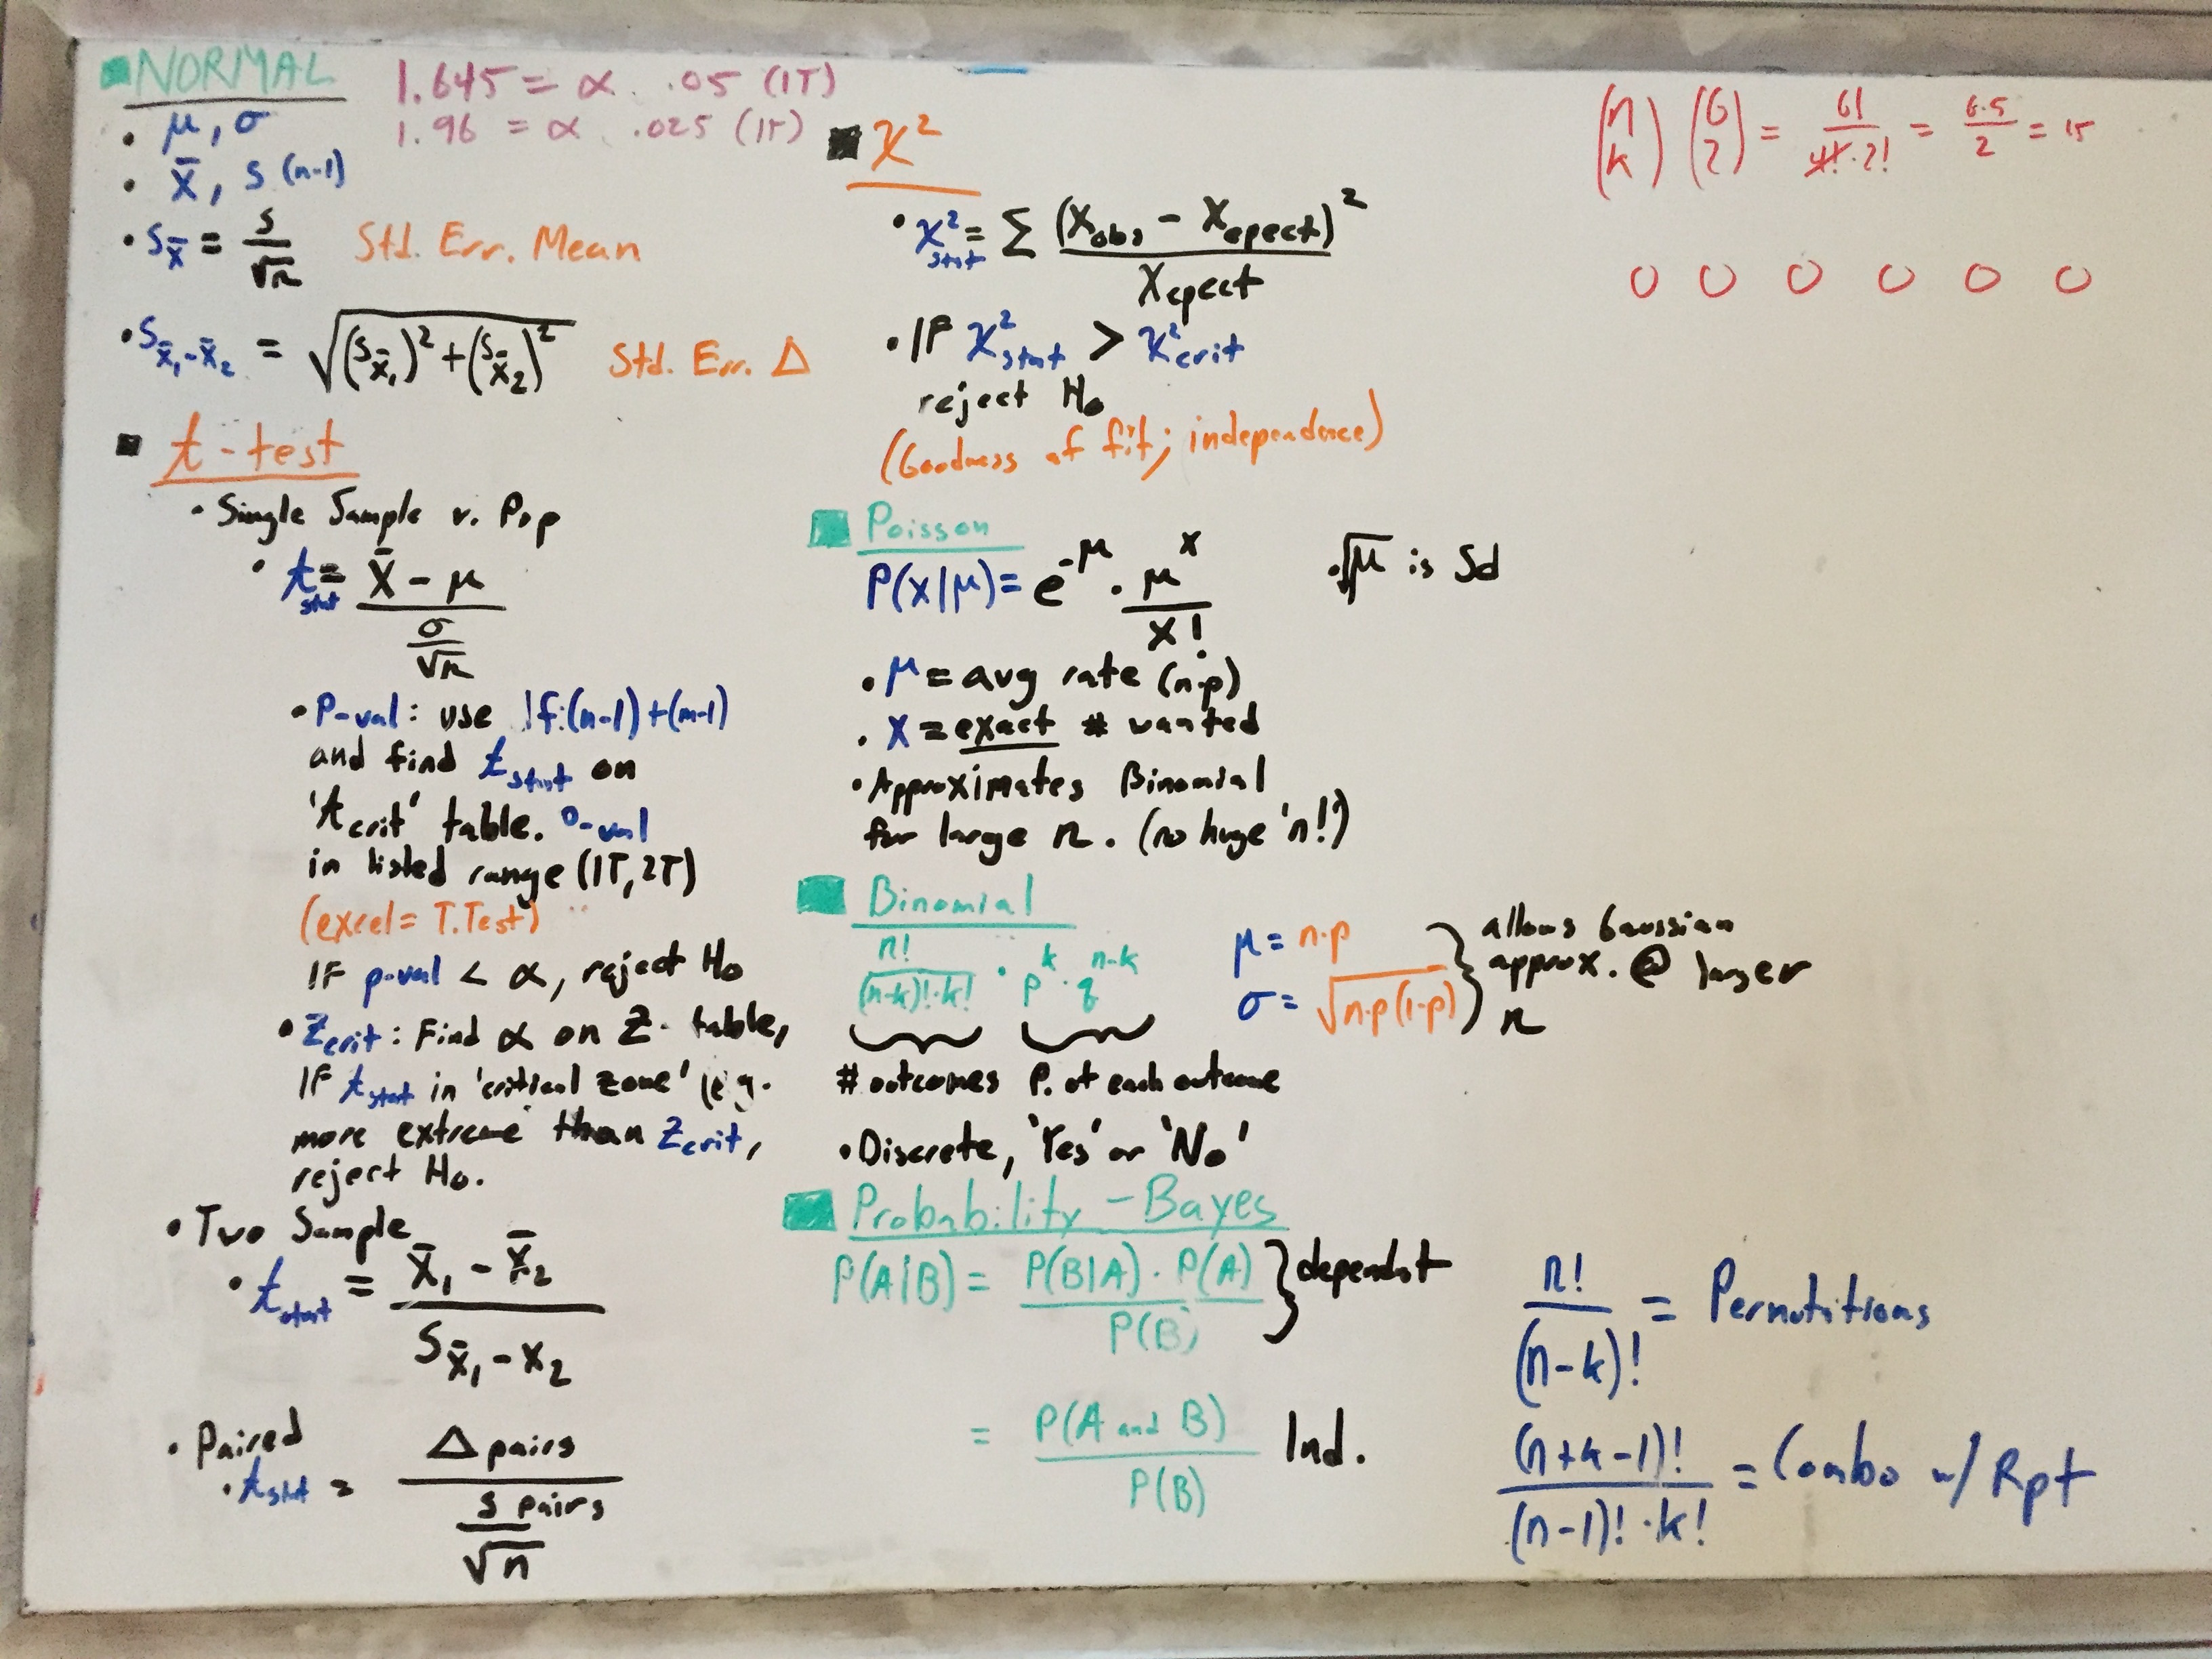 NORMAL
1.645 = α .05 (1T)
1.96 = α .025 (1T)
• μ, σ
• x̄, s (n-1)
• s_x̄ = s/√n Std. Err. Mean
• s_x̄₁-x̄₂ = √((s_x̄₁)² + (s_x̄₂)²) Std. Err. Δ
t-test
• Single Sample v. Pop
• t_stat = (x̄ - μ)/(σ/√n)
• P-val: use df:(n-1)+(m-1)
and find t_stat on
't_crit' table. p-val
in listed range (1T, 2T)
(excel= T.Test)
IF p-val < α, reject H₀
• Z_crit: Find α on Z- table,
IF t_stat in 'critical zone' (e.g.
more extreme than Z_crit,
reject H₀.
• Two Sample
• t_stat = (x̄₁ - x̄₂)/(S_x̄₁-x₂)
• Paired
• t_stat = Δ pairs/(s pairs/√n)
χ²
• χ²_stat = Σ (X_obs - X_epect)²/X_epect
• IF χ²_stat > χ²_crit
reject H₀
(Goodness of fit; independence)
Poisson
P(x|μ) = e^-μ · μ^x/x!
• √μ is Sd
• μ = avg rate (n·p)
• X = exact # wanted
• Approximates Binomial
for large n. (no huge 'n!')
Binomial
n!/((n-k)!·k!) · p^k · q^n-k
# outcomes P. of each outcome
μ = n·p
σ = √(n·p(1-p))
allows Gaussian
approx. @ larger
n
• Discrete, 'Yes' or 'No'
Probability - Bayes
P(A|B) = P(B|A) · P(A)/P(B) } dependent
= P(A and B)/P(B) Ind.
(n k) (6 2) = 6!/(4!·2!) = 6·5/2 = 15
O O O O O O
n!/(n-k)! = Permutations
(n+k-1)!/((n-1)!·k!) = Combo w/ Rpt